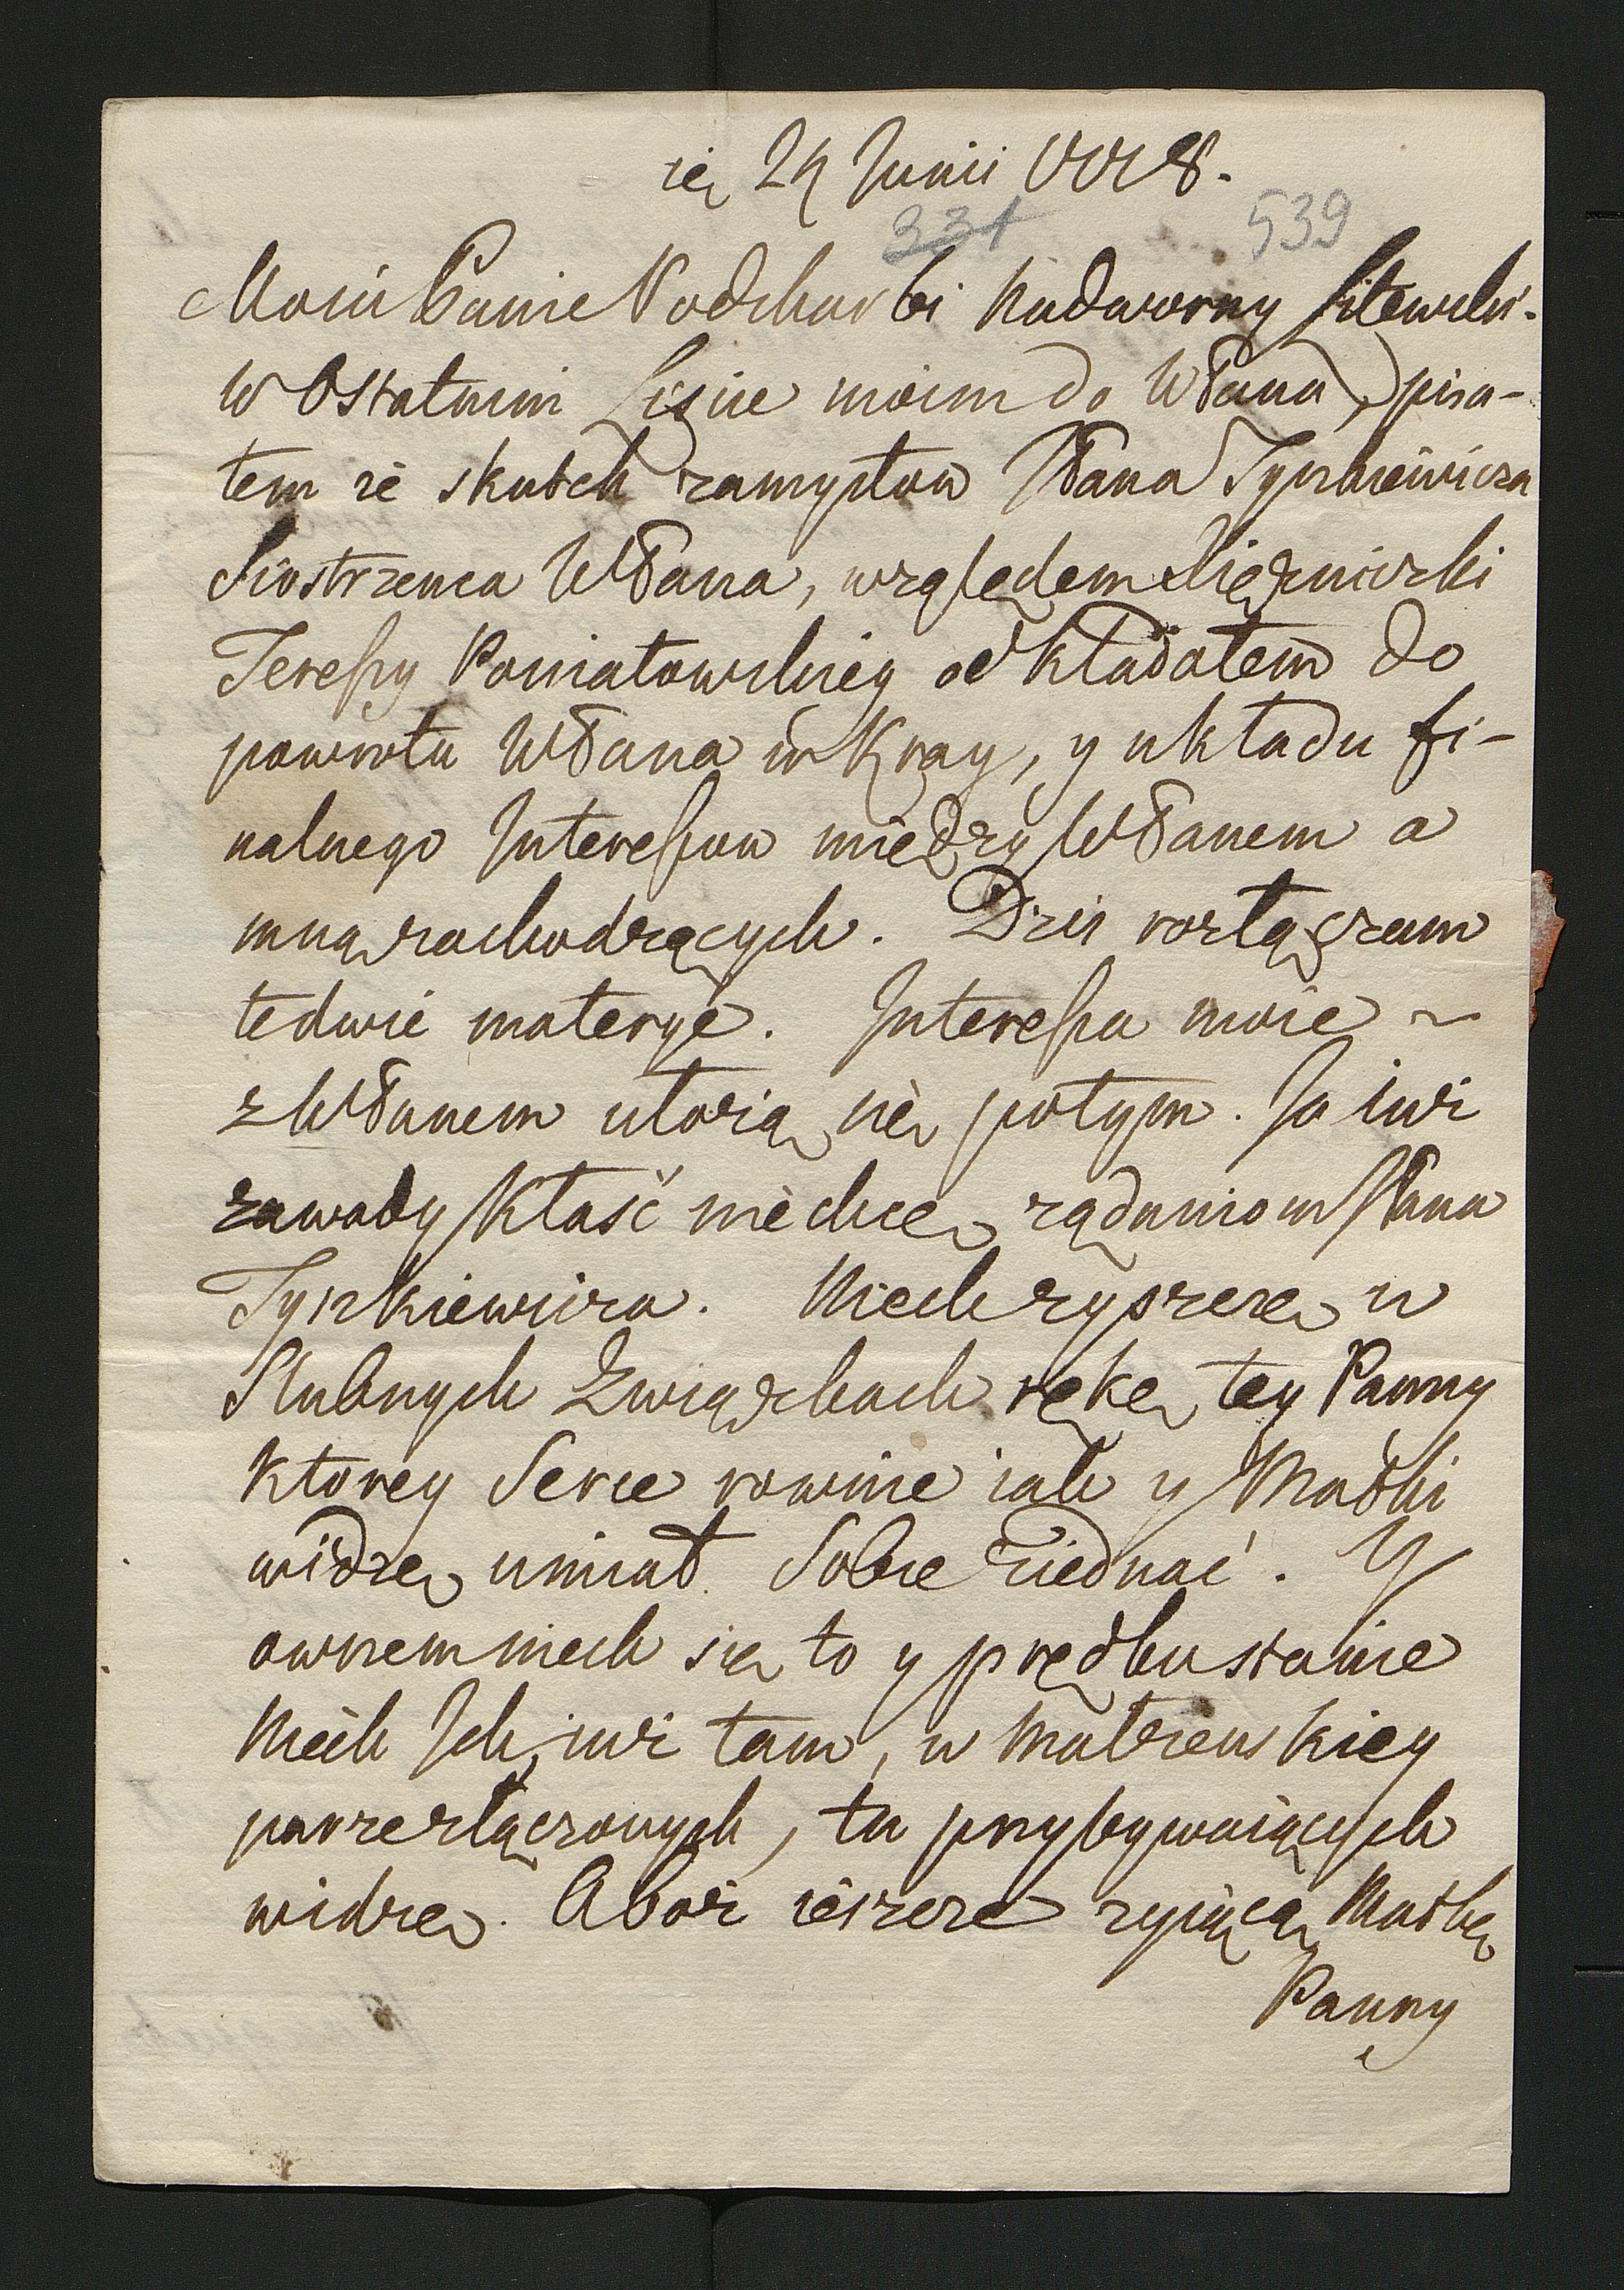 24 Junii
331 539
Mości Panie Podskarbi Nadworny Litewski.
W Ostatnim Liscie moim do WPana, pisa-
łem że skutek zamysłow JPana Tyszkiewicza
Siostrzenca WPana, względem Xiężniczki
Teressy Poniatowskiey odkładałem do
powrotu WPana w Kray, y układu fi-
nalnego Interessow między WPanem a
mną zachodzących. Dziś rozłączam
te dwie materye. Interessa moie
z WPanem ułożią się potym. Ja iuż
zawady kłaść nie chcę żądaniom JPana
Tyszkiewicza. Niech zyszcze w
Slubnych Związkach rękę tey Panny
ktorey Serce rownie iak y Matki
widzę umiał Sobie ziednać. Y
owszem niech się to y prędko stanie
Niech Ich iuż tam, w Małżenskiey
parze złączonych, tu przybywaiących
widzę. Aboż ieszcze zyiącą Matkę
Panny